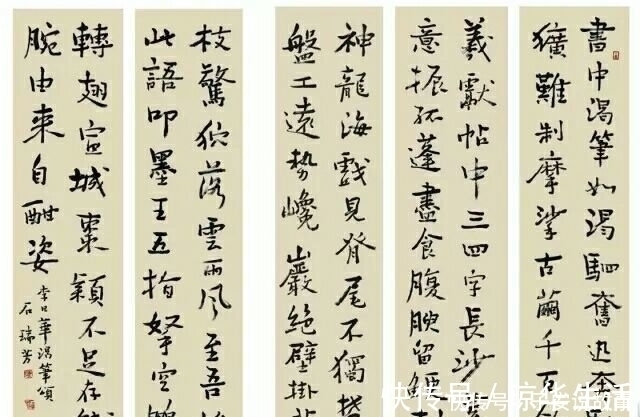 書中渴筆如渴驷奮迅奔
獷難制摩挲古繭千百
羲獻帖中三四字長沙
意振孤蓬盡食腹腴留
神龍海戲見脊尾不獨
盤工遠勢巉巖絕壁掛
枝驚猊落雲雨風至吾
此語叩墨王五指拏空
轉翅宣城棗穎不足存
腕由來自酣姿
李日華渴筆頌
石瑞芳
快传号